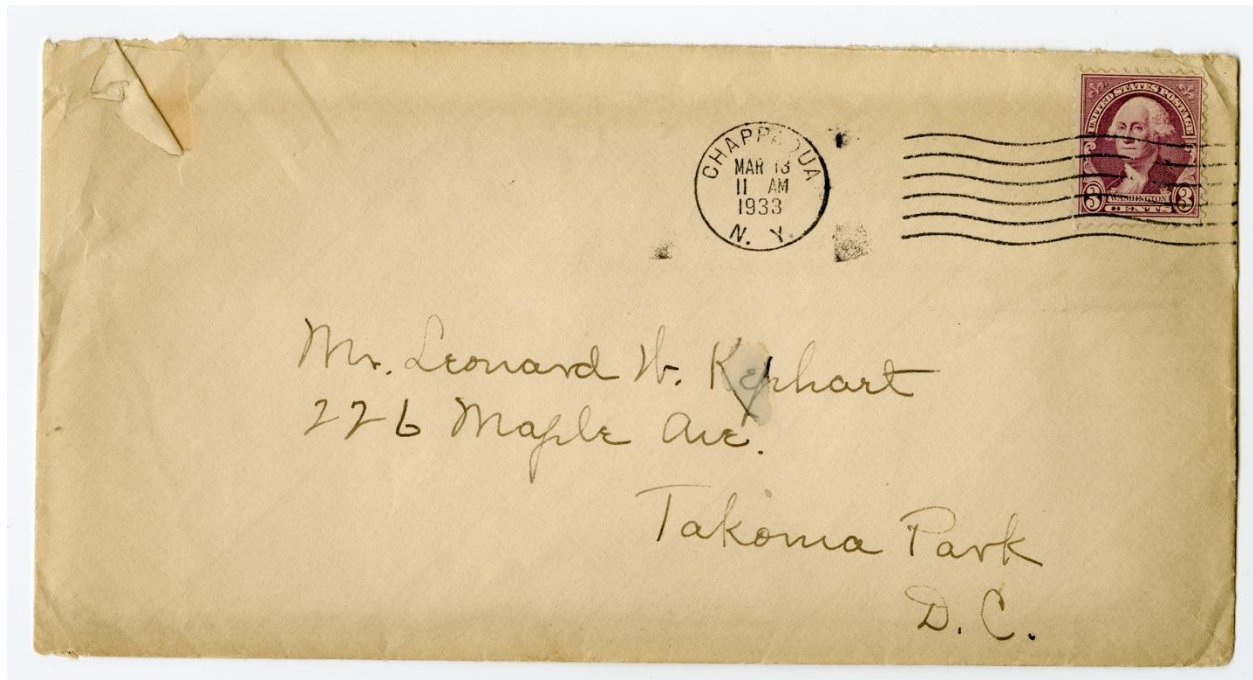 CHAPPAQUA
MAR 13
11 AM
1933
N. Y.
UNITED STATES POSTAGE
3 WASHINGTON 3
CENTS
Mr. Leonard W. Kephart
226 Maple Ave.
Takoma Park
D. C.